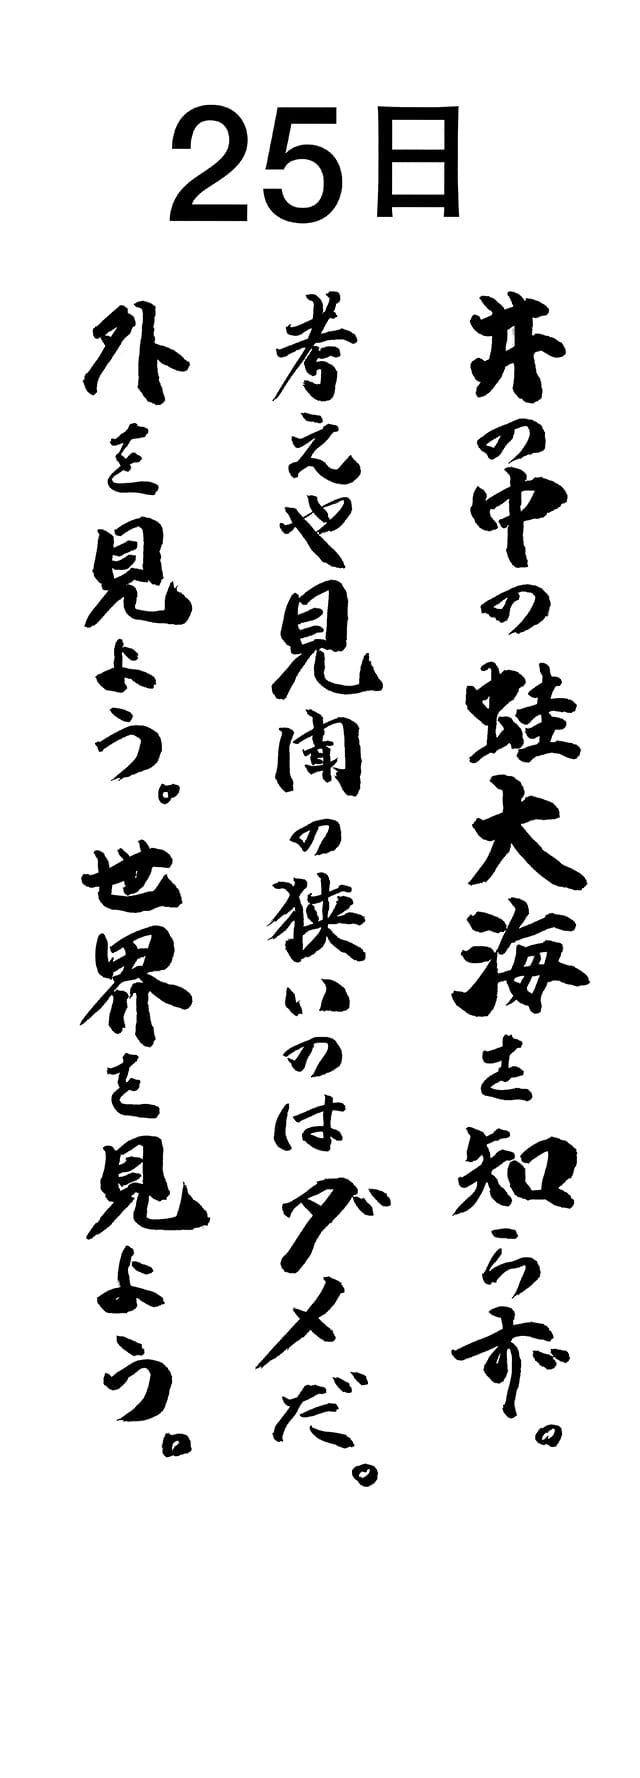 25日
井の中の蛙大海を知らず。
考えや見聞の狭いのはダメだ。
外を見よう。世界を見よう。